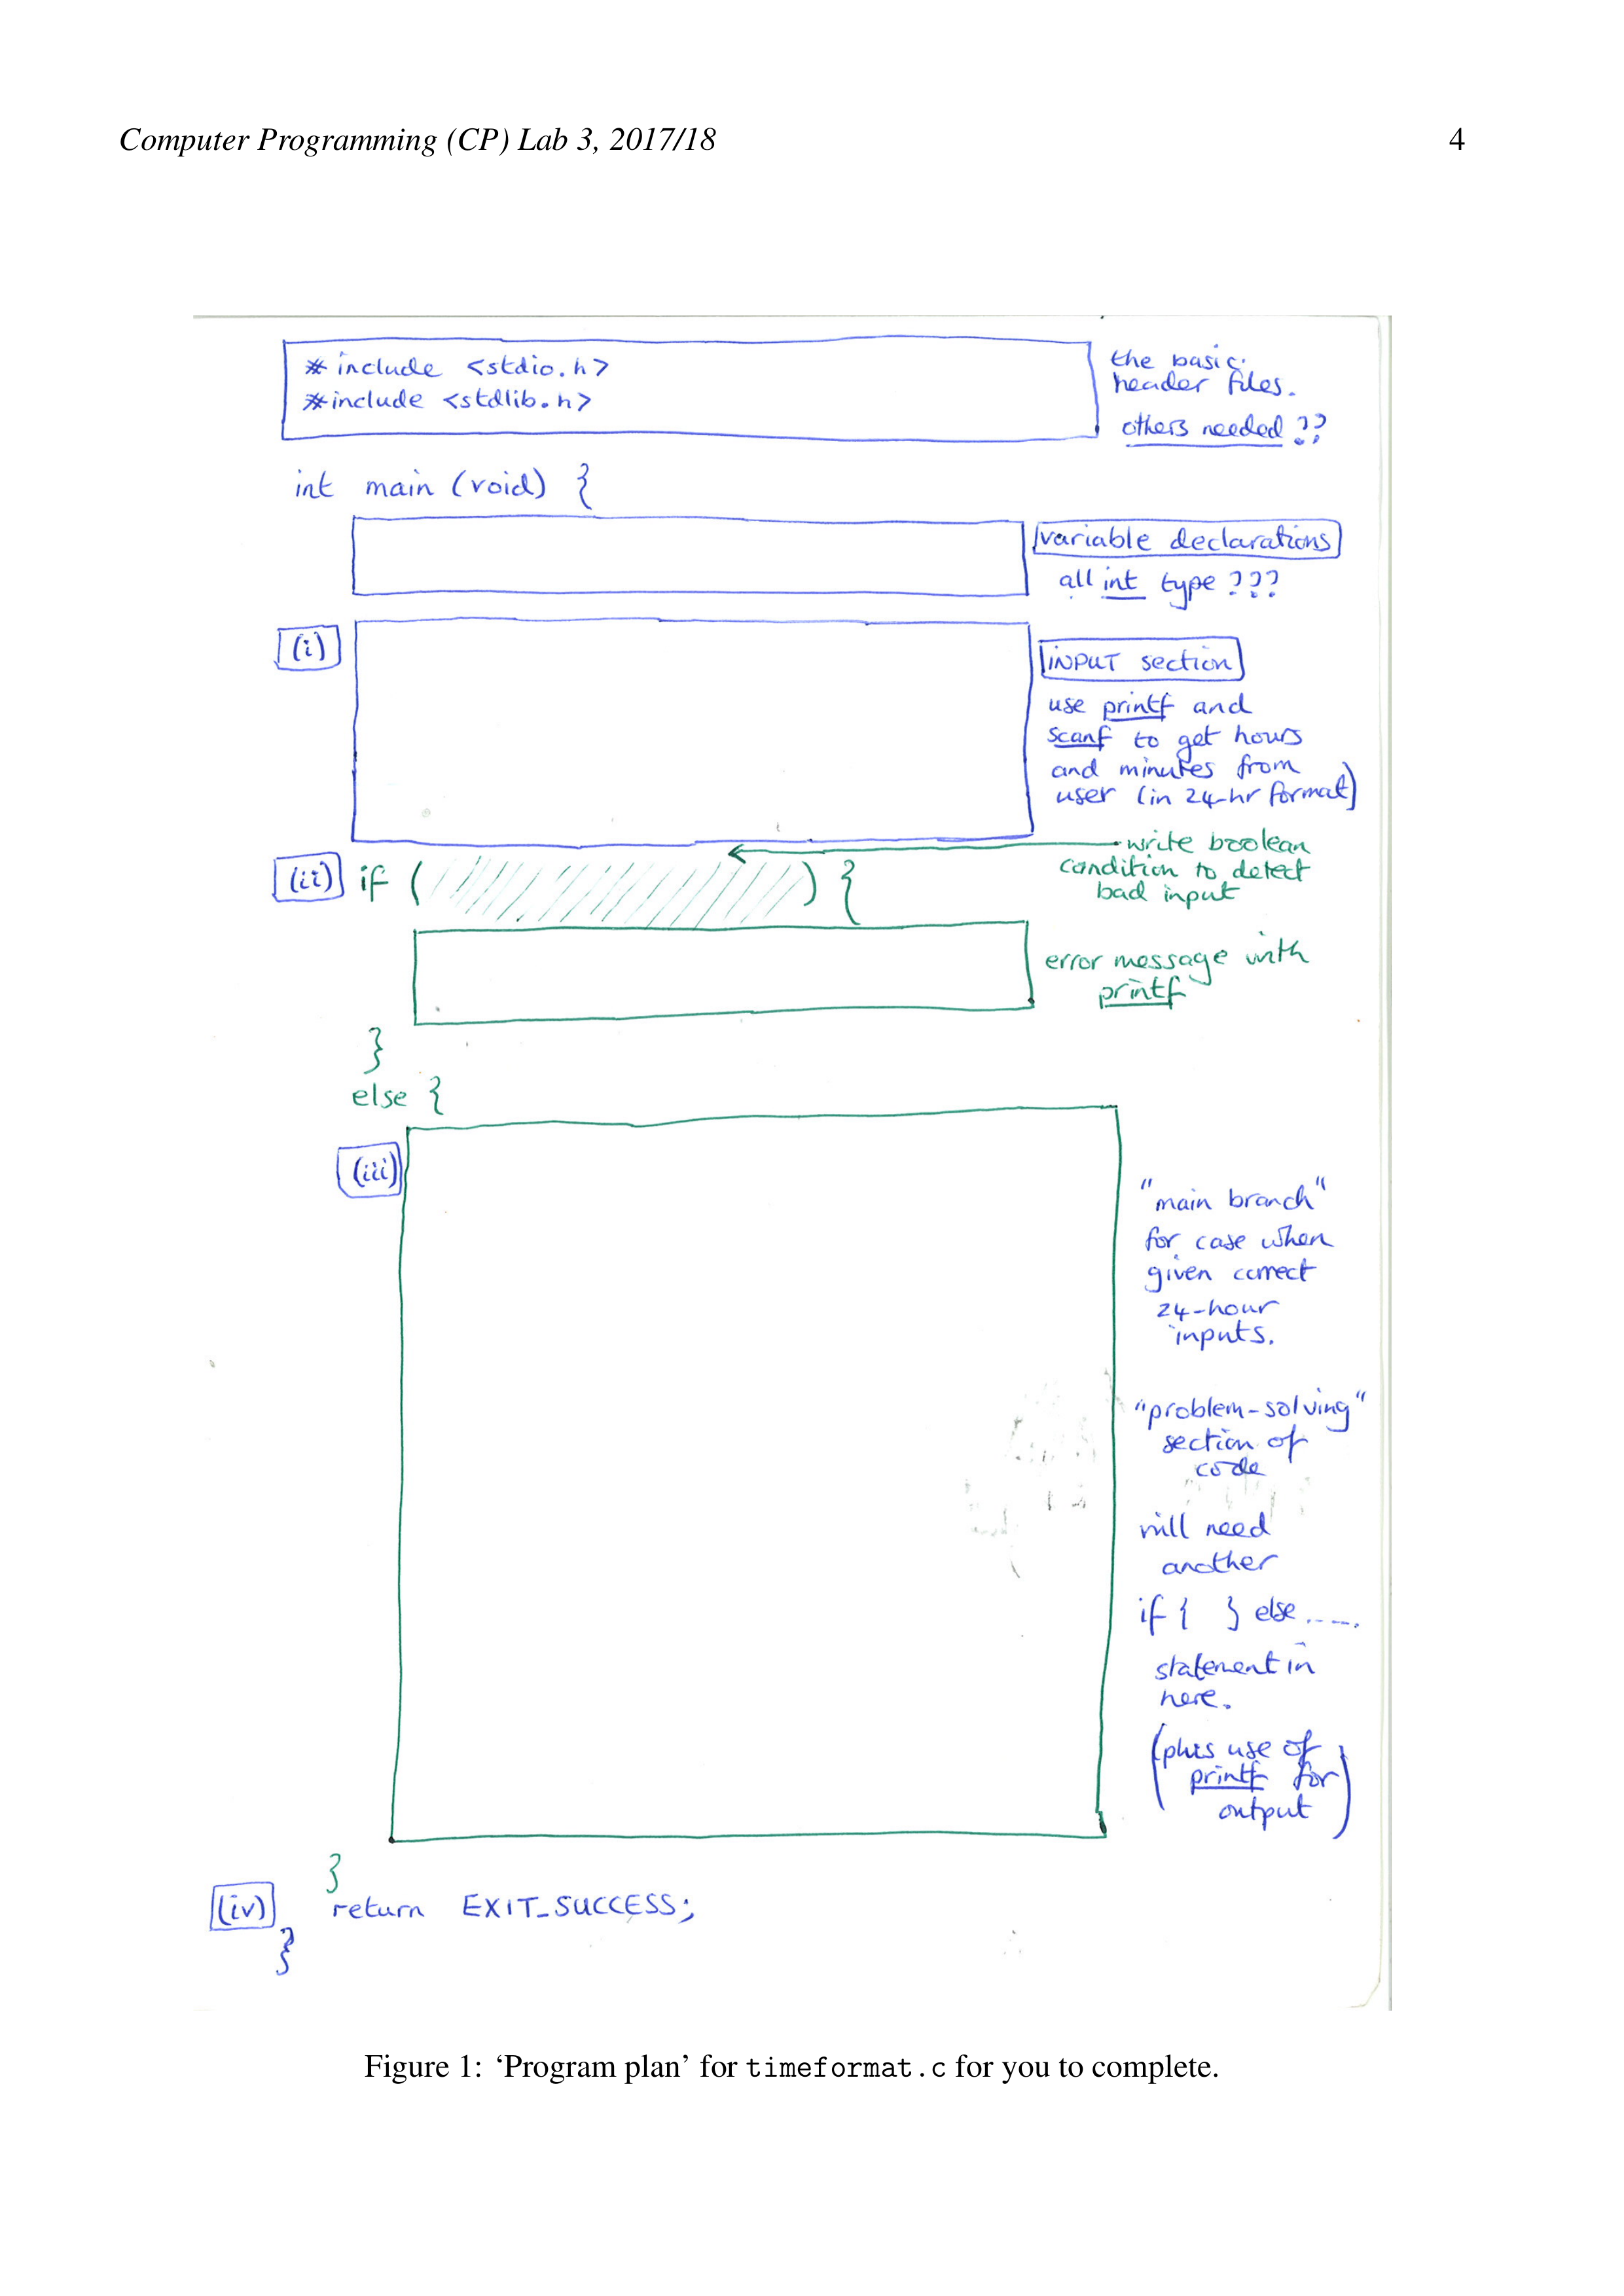 Computer Programming (CP) Lab 3, 2017/18 4
#include <stdio.h>
#include <stdlib.h>
the basic
header files.
others needed ??
int main (void) {
variable declarations
all int type ???
(i)
INPUT section
use printf and
scanf to get hours
and minutes from
user (in 24-hr format)
(ii) if ( ) {
write boolean
condition to detect
bad input
error message with
printf
}
else {
(iii)
"main branch"
for case when
given correct
24-hour
inputs.
"problem-solving"
section of
code
will need
another
if { } else .....
statement in
here.
(plus use of
printf for
output)
}
(iv) return EXIT_SUCCESS;
}
Figure 1: ‘Program plan’ for timeformat.c for you to complete.